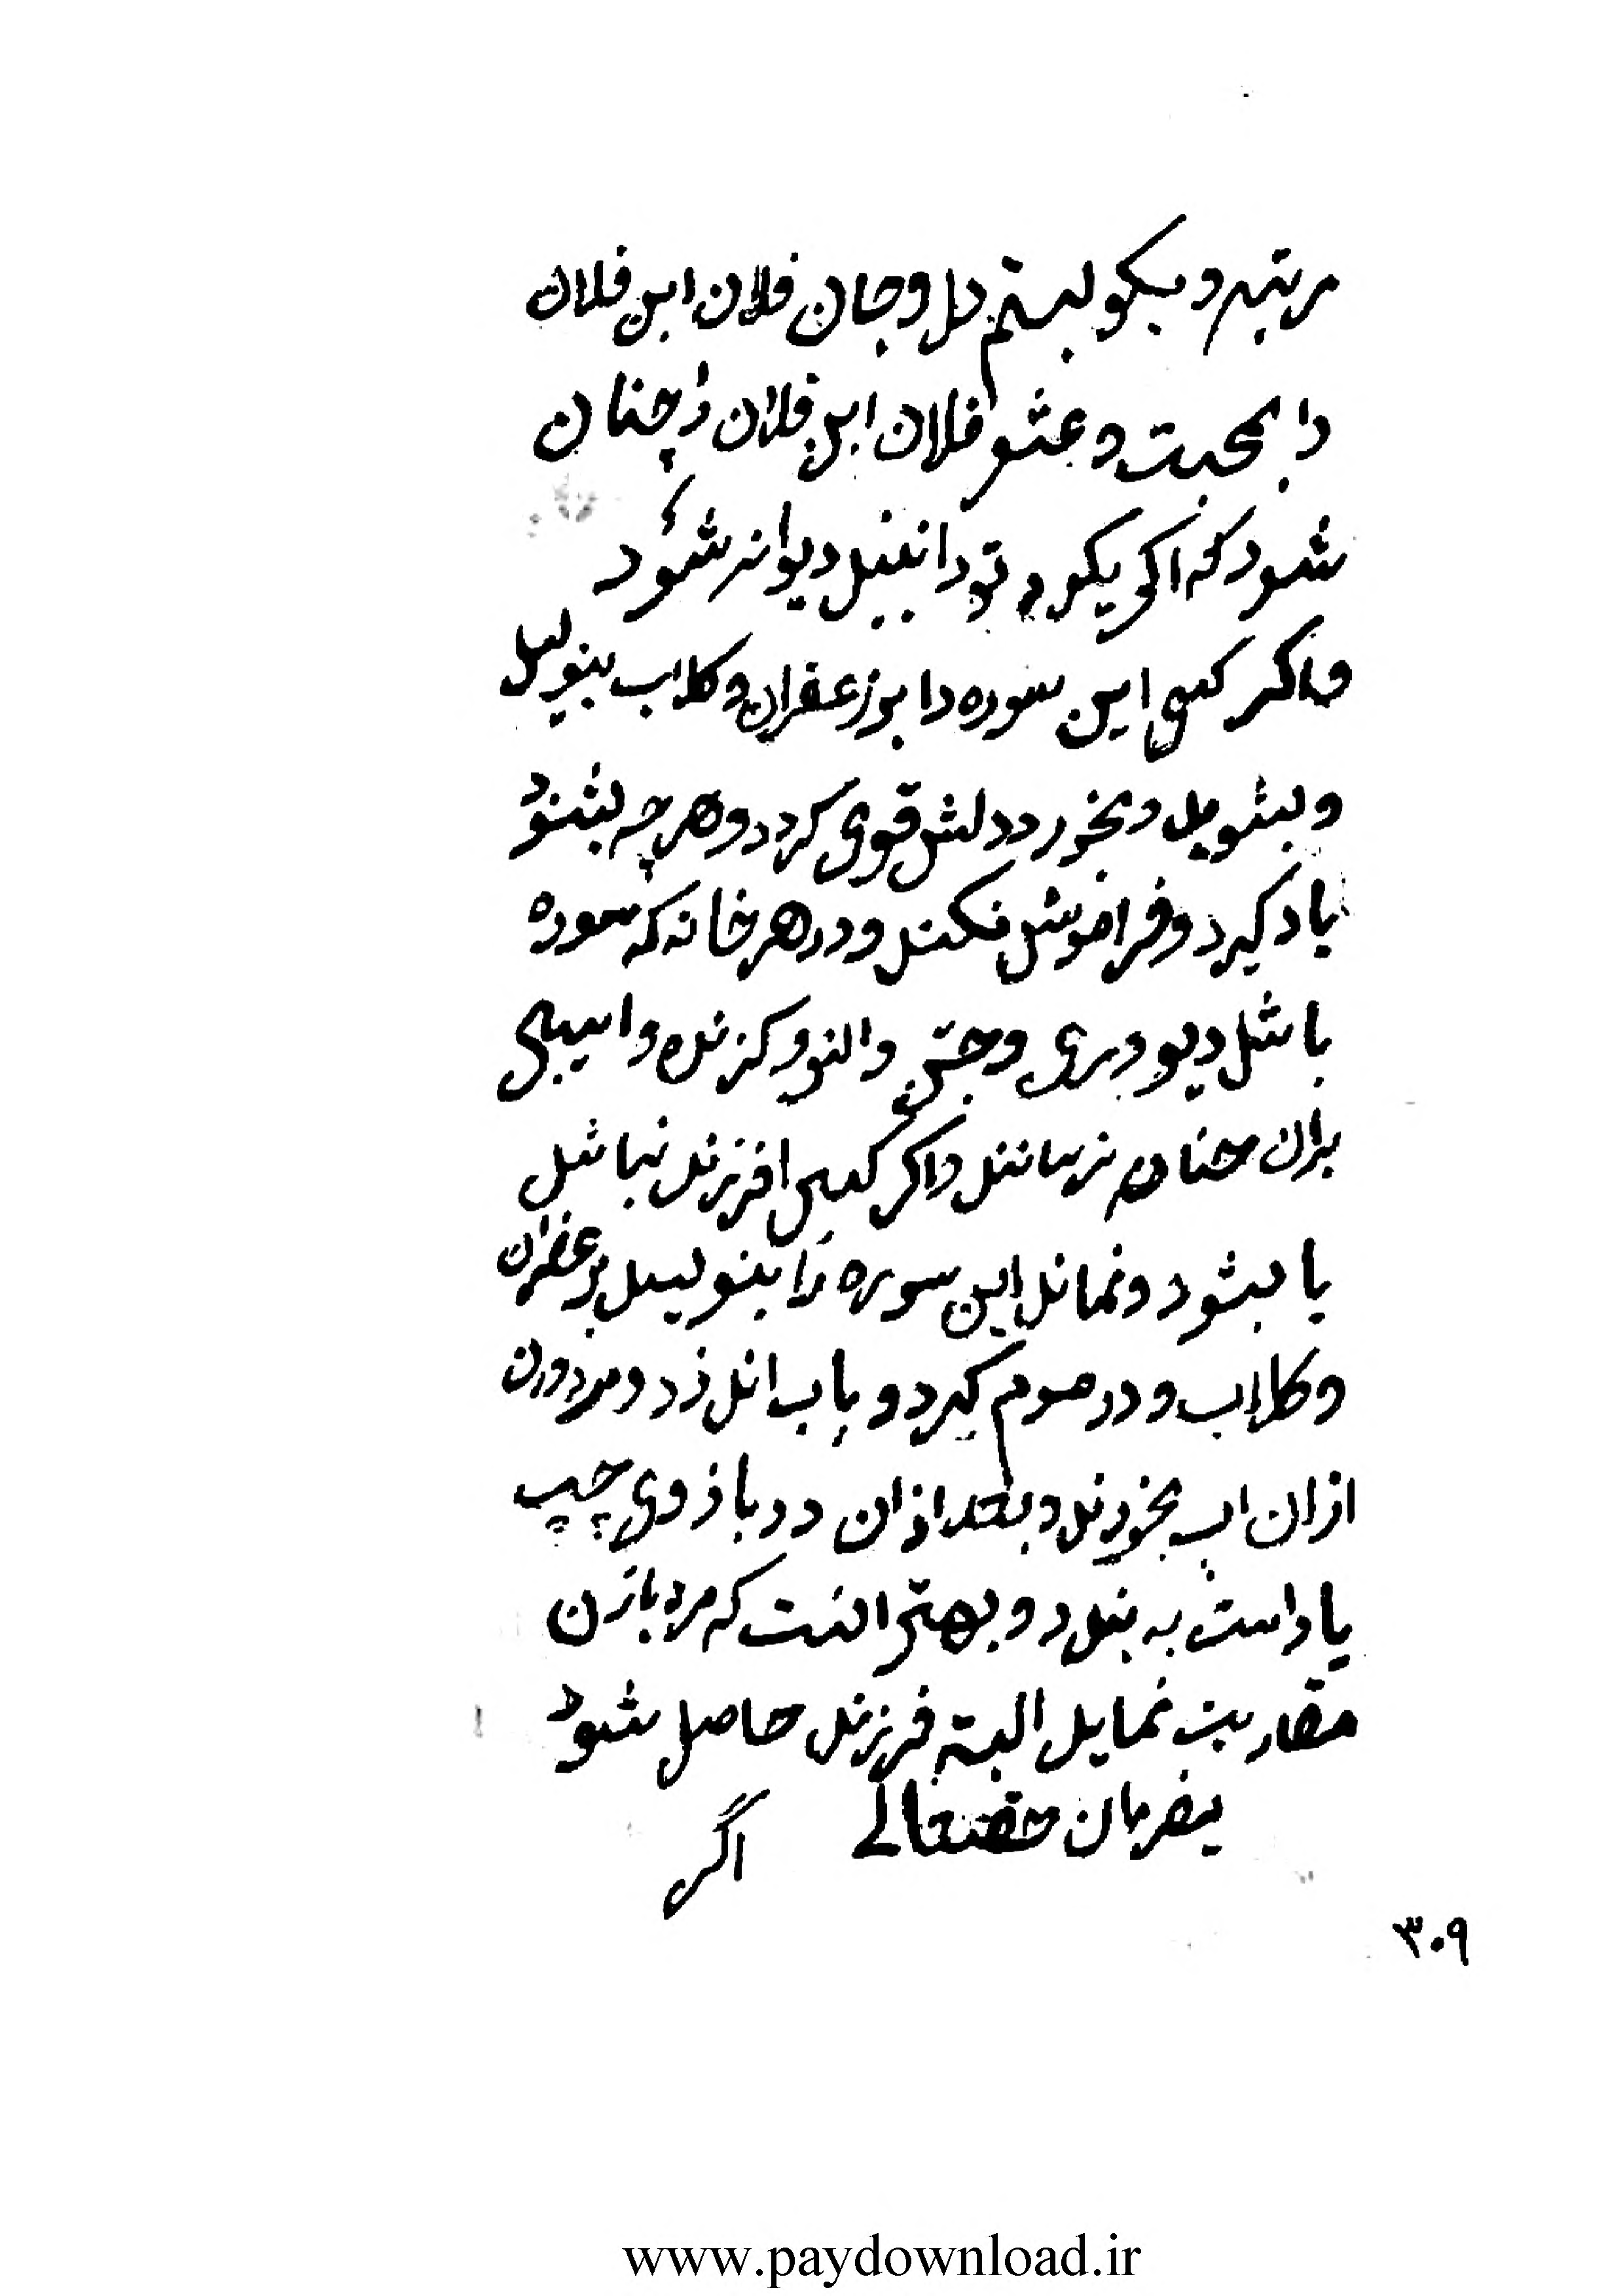 مرتبه و بکو بستم دل و جان فلان ابن فلان
را بمحبت و عشق فلان ابن فلان را چنان
شود که اکر یکدم تو را نبیند دیوانه شود
واکر کسی این سوره را بزعفران و کلاب بنویسد
و بشوید و بخورد دلش قوی کردد و هر چه بشنود
یاد کیرد و فراموش نکند و در هر خانه که سوره
باشد دیو و پری و جن و انس و کزنده و اسیبی
بران خانه نرسانند و اکر کسی را فرزند نباشد
یا بشود و نماند این سوره را بنویسد بزعفران
و کلاب و در موم کیرد و باب اندازد و مرد و زن
ازان اب بخورند و بعد ازان در بازوی چپ
یا راست به بندد و بهتر انست که مرد با زن
مقاربت نماید البته فرزند حاصل شود
بفرمان حقتعالی اگر
۳۰۹
www.paydownload.ir